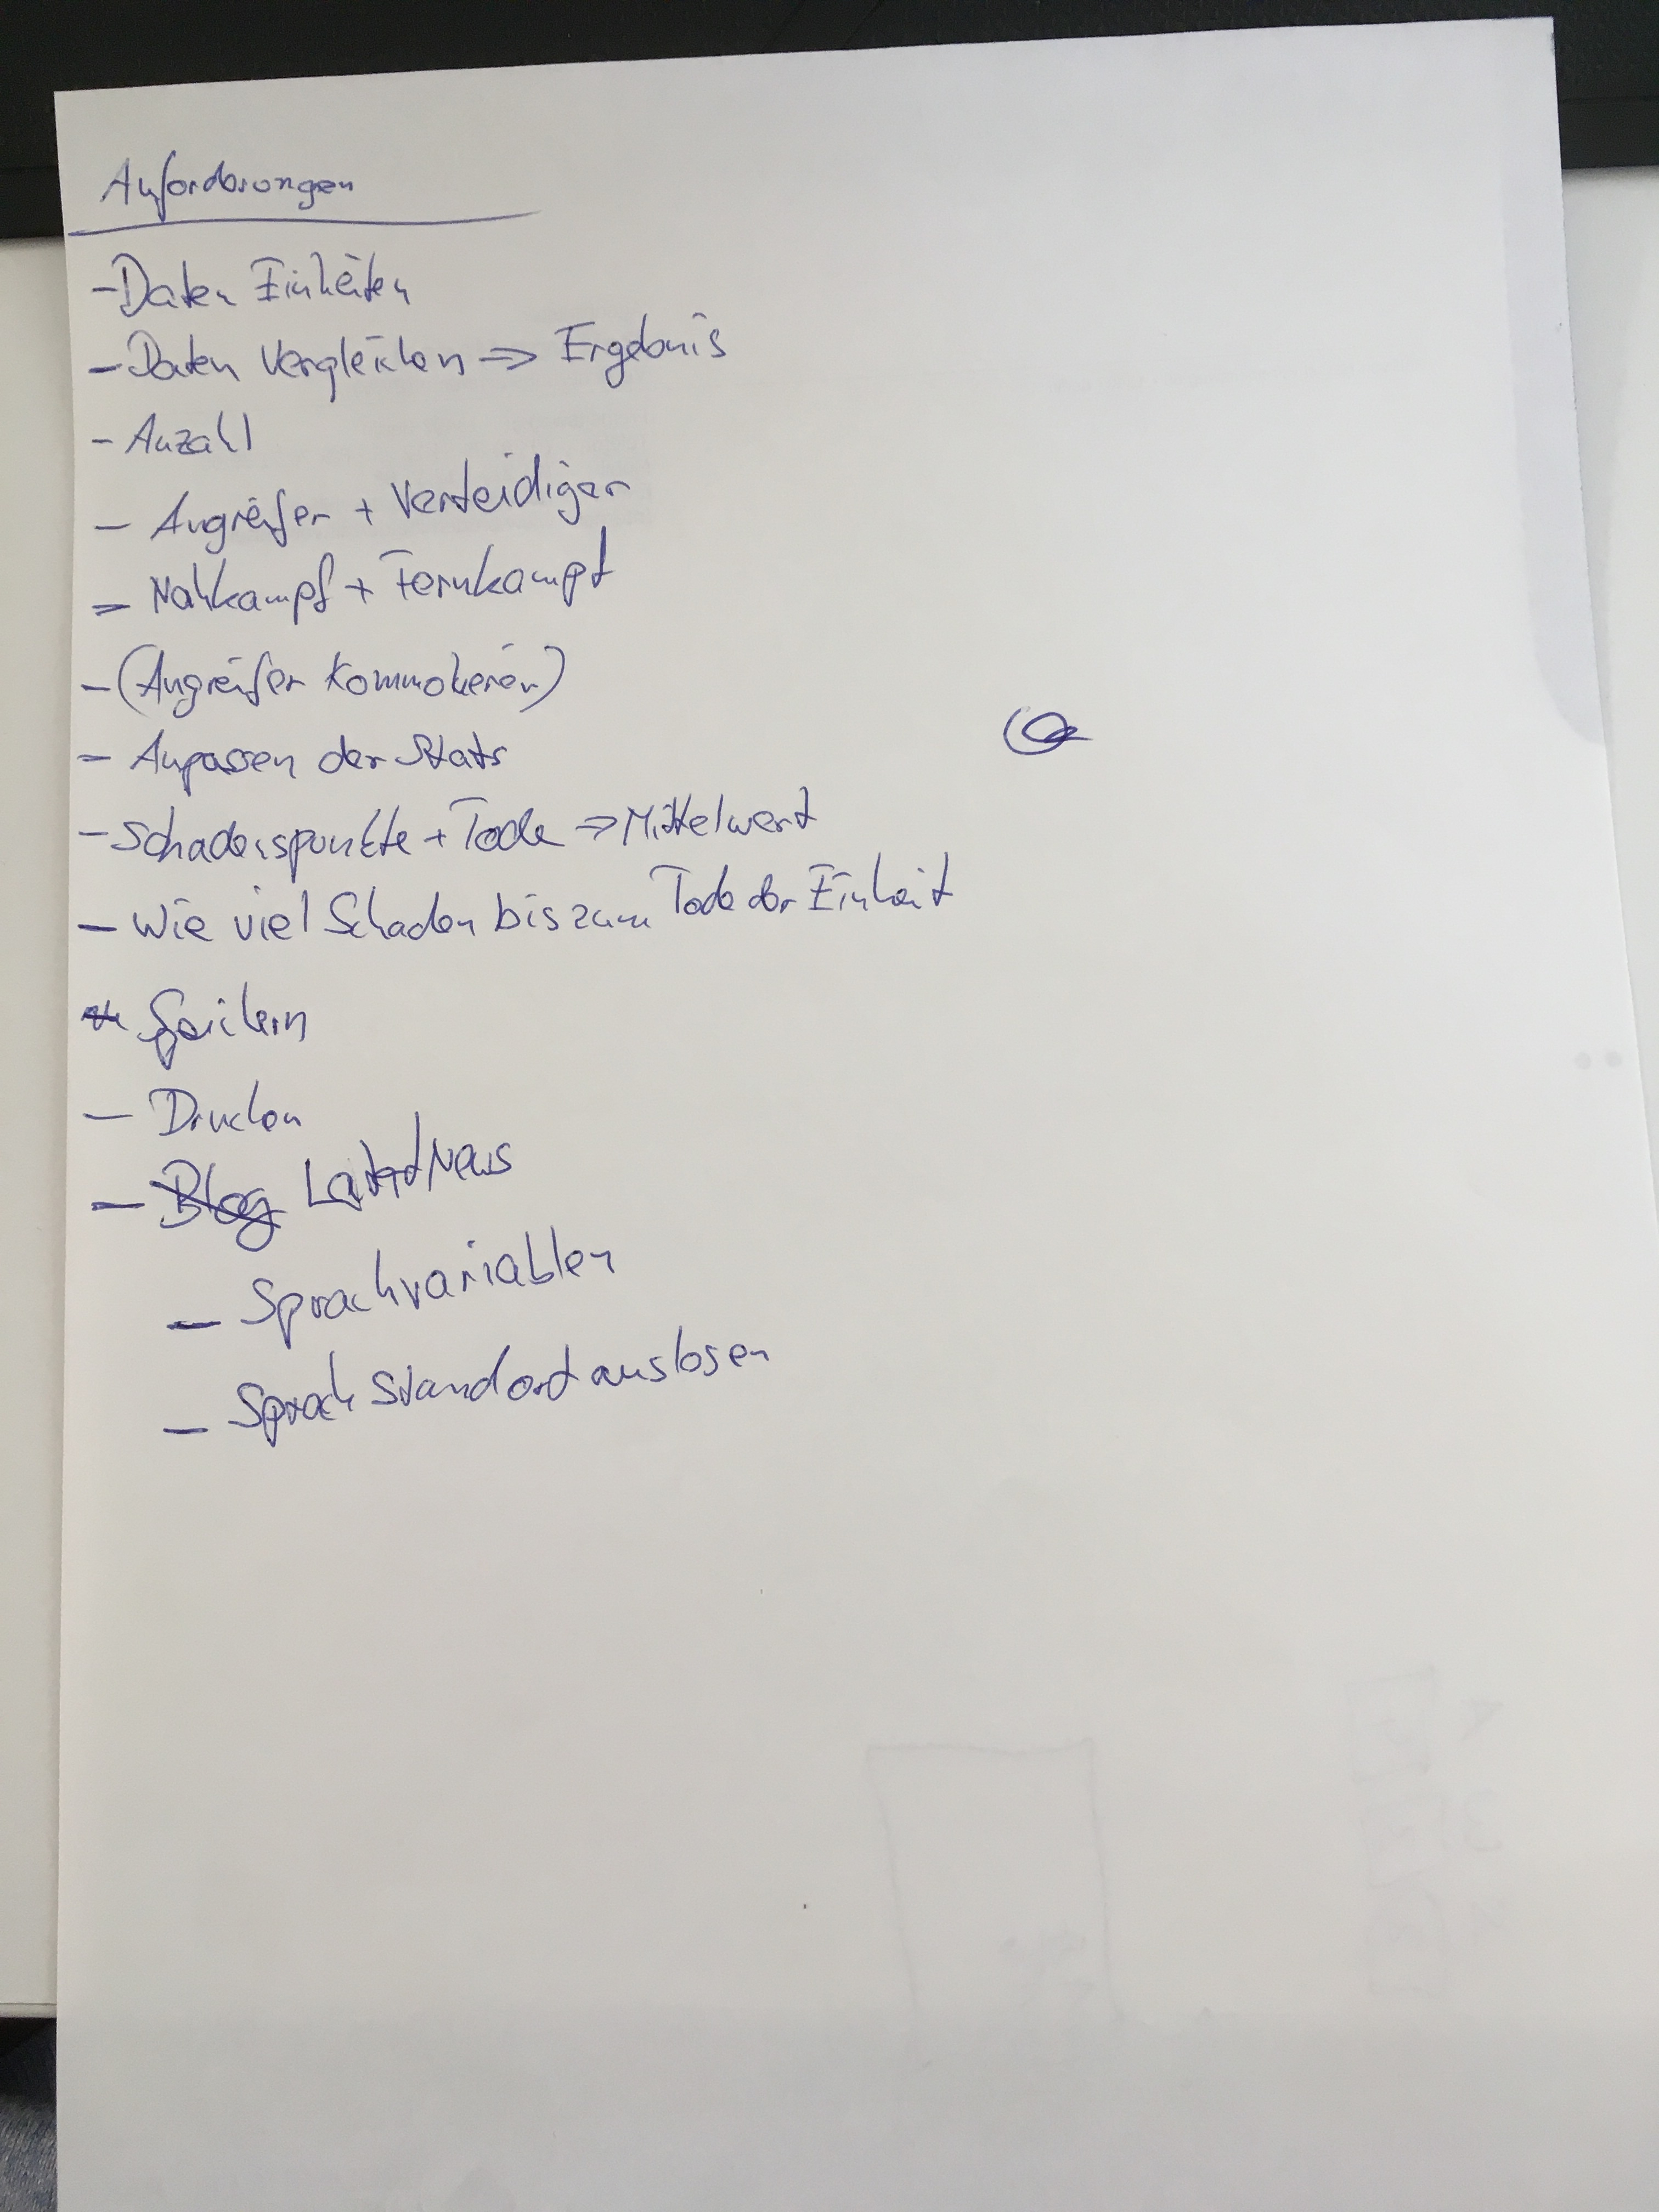 Anforderungen
- Daten Einheiten
- Daten vergleichen => Ergebnis
- Anzahl
- Angreifer + Verteidiger
- Nahkampf + Fernkampf
- (Angreifer
- Anpassen der Stats
- Schadenspunkte + Tode => Mittelwert
- Wie viel Schaden bis zum Tode der Einheit
Speichern
- Drucken
- Blog News
- Sprachvariablen
- Sprach Standort auslesen